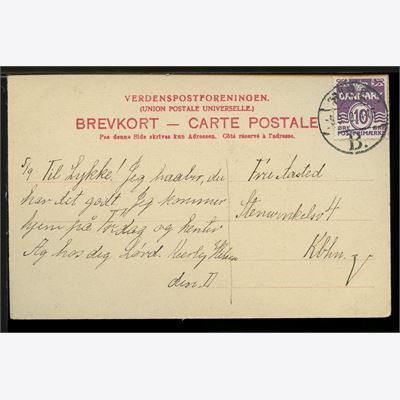 VERDENSPOSTFORENINGEN.
(UNION POSTALE UNIVERSELLE.)
BREVKORT — CARTE POSTALE
Paa denne Side skrives kun Adressen. Côté réservé à l'adresse.
DANMARK
10
ØRE ØRE
POSTFRIMÆRKE
B.
5/9 Til Lykke! Jeg haaber, du
har det godt. Jeg kommer
hjem på Torsdag og henter
hos dig Lørd. Kærlig Hilsen
den
Fru
Stenwinkelsv 4
Kbhn.
V